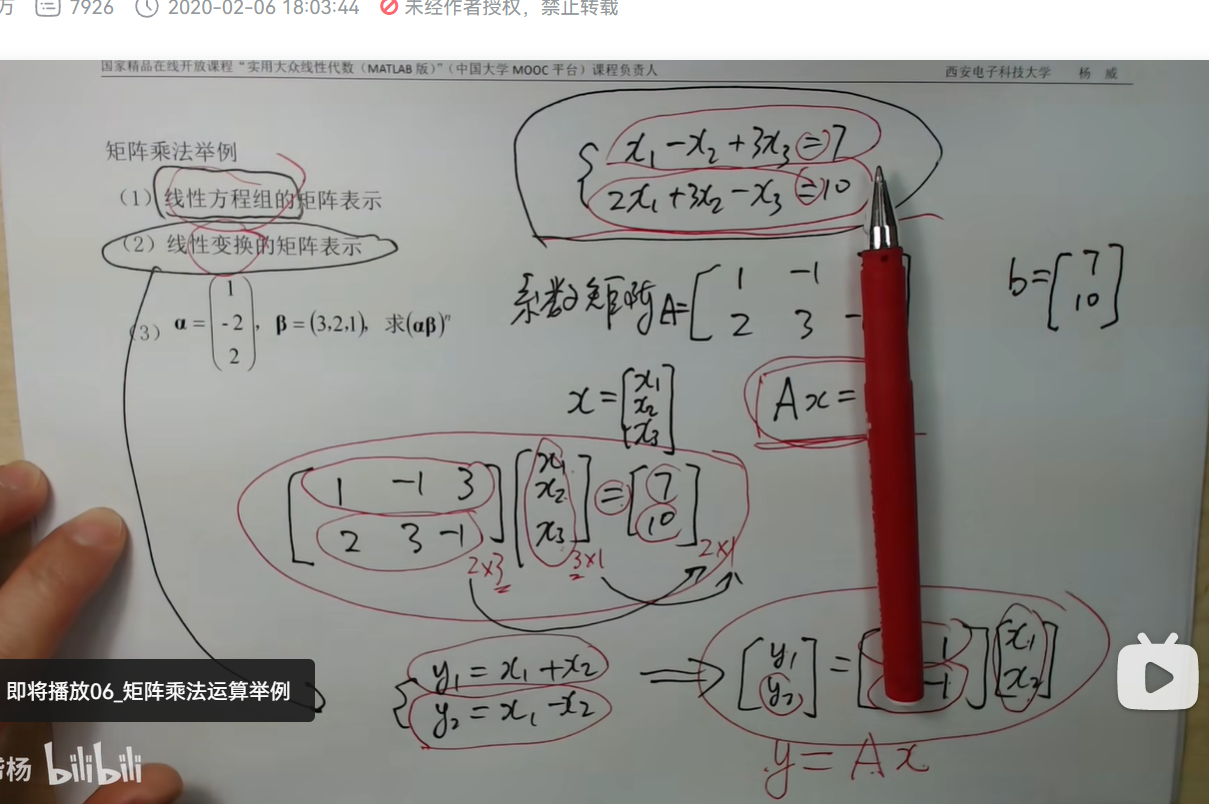 万 7926 2020-02-06 18:03:44 未经作者授权，禁止转载
国家精品在线开放课程“实用大众线性代数（MATLAB 版）”（中国大学 MOOC 平台）课程负责人 西安电子科技大学 杨 威
矩阵乘法举例
（1）线性方程组的矩阵表示
（2）线性变换的矩阵表示
（3）α = (1, -2, 2), β = (3,2,1), 求(αβ)ⁿ
x₁ - x₂ + 3x₃ = 7
2x₁ + 3x₂ - x₃ = 10
系数矩阵 A = [1 -1
2 3 -
b = [7
10]
x = [x₁
x₂
x₃]
Ax =
[1 -1 3
2 3 -1] [x₁
x₂
x₃] = [7
10]
2×3 3×1 2×1
y₁ = x₁ + x₂
y₂ = x₁ - x₂
⇒ [y₁
y₂] = [ 1
-1] [x₁
x₂]
y = Ax
即将播放06_矩阵乘法运算举例
杨 bilibili